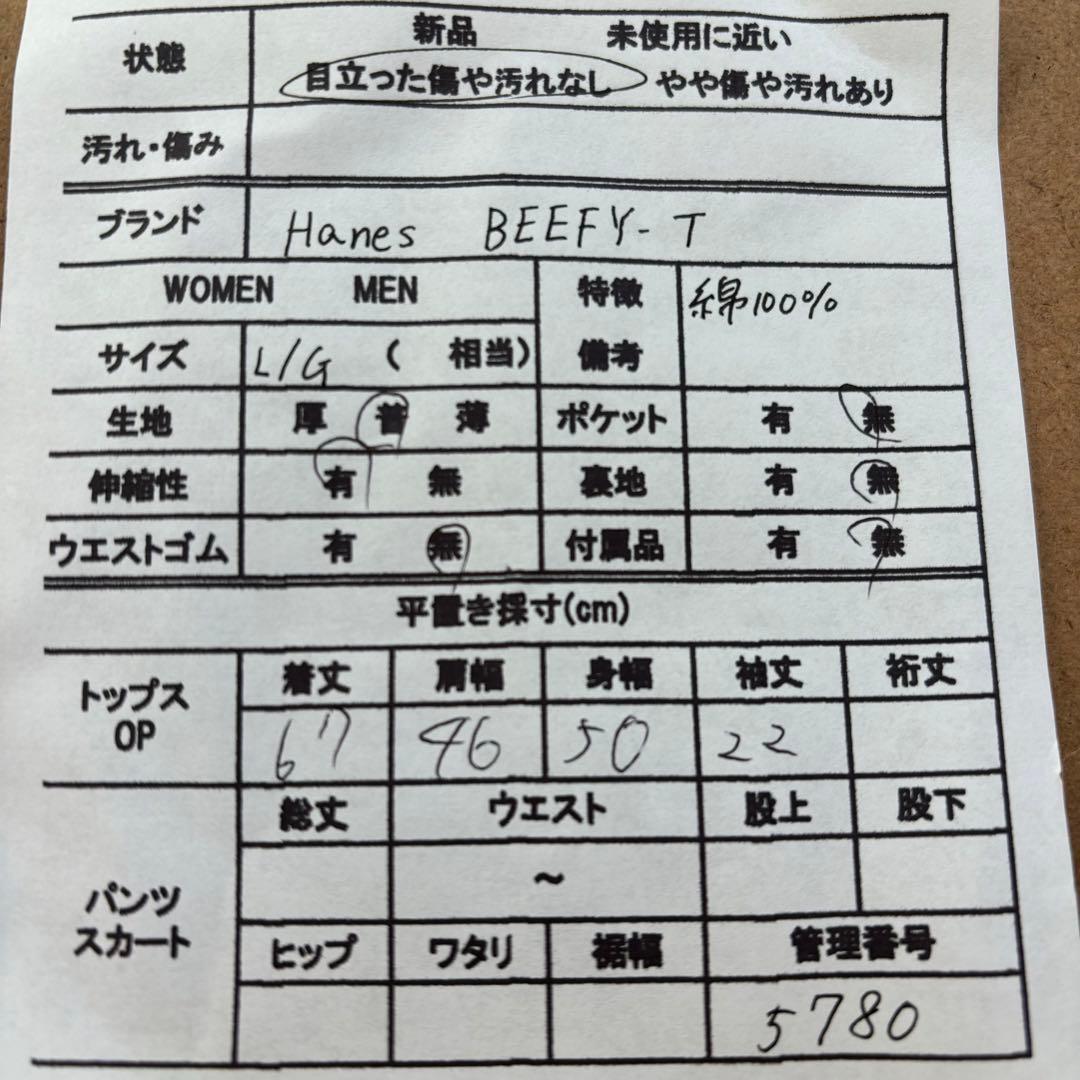 状態 新品 未使用に近い
目立った傷や汚れなし やや傷や汚れあり
汚れ・傷み
ブランド Hanes BEEFY-T
WOMEN MEN 特徴 綿100%
サイズ L/G ( 相当) 備考
生地 厚 普 薄 ポケット 有 無
伸縮性 有 無 裏地 有 無
ウエストゴム 有 無 付属品 有 無
平置き採寸(cm)
トップス OP 着丈 肩幅 身幅 袖丈 裄丈
67 46 50 22
パンツ スカート 総丈 ウエスト 股上 股下
~
ヒップ ワタリ 裾幅 管理番号
5780